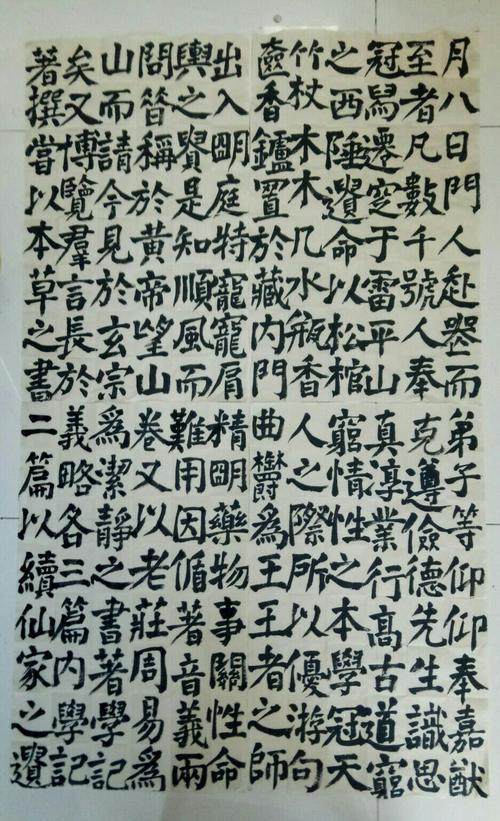 月八日門人赴喪而弟子等仰仰奉嘉猷
至者凡數千號人奉克遵儉德先生識思
冠舄遷窆于雷平山真淳業行高古道窮
之西陲遺命以松棺窮情性之本學冠天
竹杖木木几水瓶香人之際所以優游句
奩香鑪置於藏内門曲欝為王王者之師
出入明庭特寵寵肩精明藥物事關性命
輿之賢是知順風而難用因循著音義兩
問昔稱於黄帝望山卷又以老莊周易為
山而請今見於玄宗為潔静之書著學記
矣又博覽羣言長於義略各三篇内學記
著撰嘗以本草之書二篇以續仙家之遺